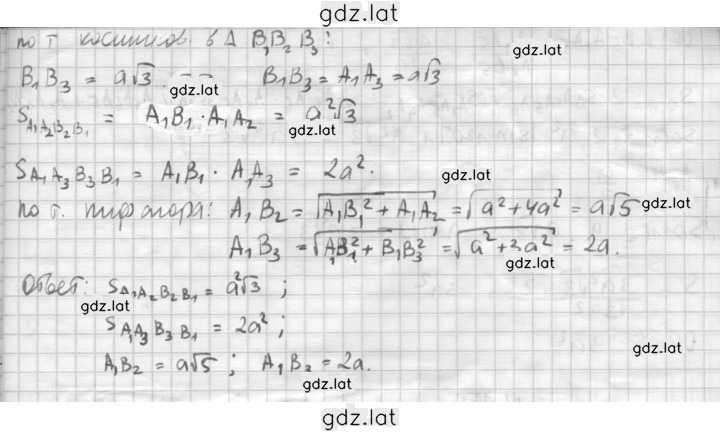 gdz.lat
по т. косинусов в Δ B₁B₂B₃:
gdz.lat
B₁B₃ = a√3 B₁B₃ = A₁A₃ = a√3
gdz.lat
S_A₁A₂B₂B₁ = A₁B₁ · A₁A₂ = a²√3
gdz.lat
S_A₁A₃B₃B₁ = A₁B₁ · A₁A₃ = 2a².
gdz.lat
по т. пифагора: A₁B₂ = √(A₁B₁² + A₁A₂) = √(a² + 4a²) = a√5
gdz.lat
A₁B₃ = √(A₁B₁² + B₁B₃²) = √(a² + 3a²) = 2a.
gdz.lat
Ответ: S_A₁A₂B₂B₁ = a²√3 ;
gdz.lat
S_A₁A₃B₃B₁ = 2a² ;
gdz.lat
A₁B₂ = a√5 ; A₁B₂ = 2a.
gdz.lat
gdz.lat